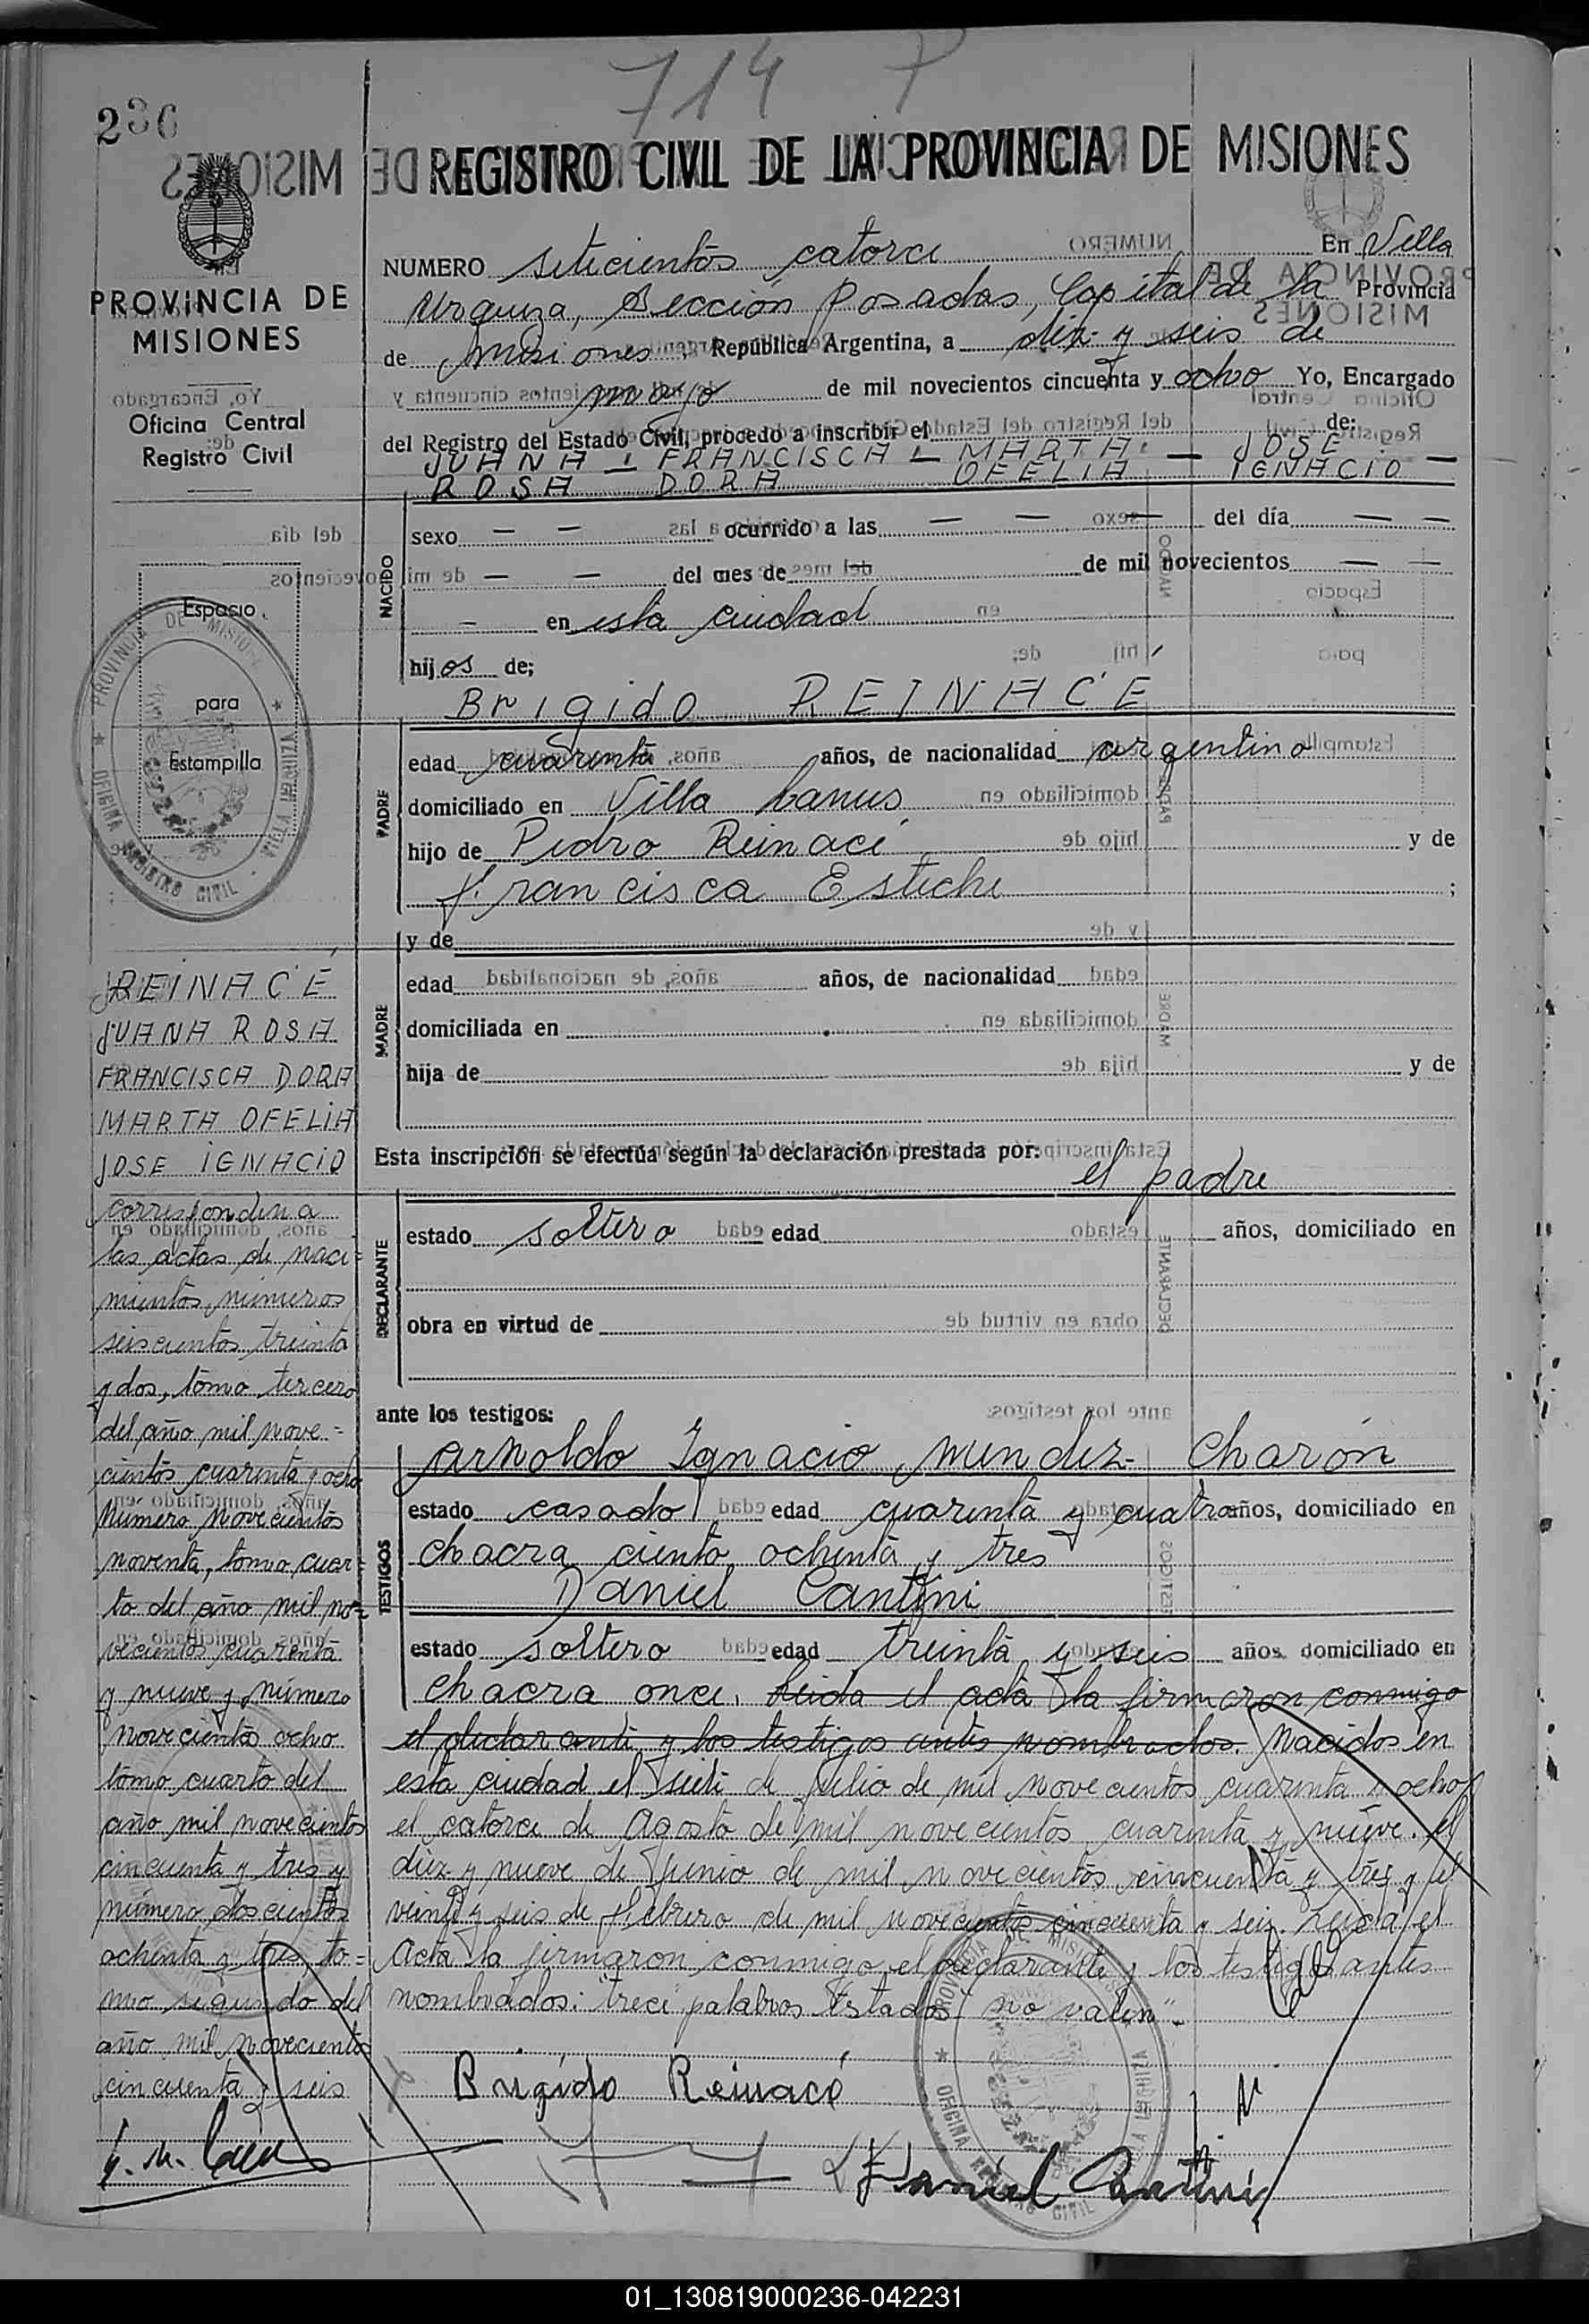 714 P
236
REGISTRO CIVIL DE LA PROVINCIA DE MISIONES
PROVINCIA DE
MISIONES
Oficina Central
Registro Civil
Espacio
para
Estampilla
NUMERO setecientos catorce En Villa
Urquiza, Sección Posadas, Capital de la Provincia
de Misiones República Argentina, a diez y seis de
mayo de mil novecientos cincuenta y ocho Yo, Encargado
del Registro del Estado Civil, procedo a inscribir el de:
JUANA - FRANCISCA - MARTA - JOSE -
ROSA DORA OFELIA IGNACIO
NACIDO
sexo — — ocurrido a las — — — del día — —
— — del mes de de mil novecientos — —
— en esta ciudad
hijos de;
Brigido REINACE
PADRE
edad cuarenta años, de nacionalidad argentino
domiciliado en Villa Lanus
hijo de Pedro Reinace y de
Francisca Esteche ;
y de
MADRE
edad años, de nacionalidad
domiciliada en
hija de y de
Esta inscripción se efectúa según la declaración prestada por:
el padre
DECLARANTE
estado soltero edad años, domiciliado en
obra en virtud de
ante los testigos:
Arnoldo Ignacio Mendez Charón
TESTIGOS
estado casado edad cuarenta y cuatro años, domiciliado en
chacra ciento ochenta y tres
Daniel Cantini
estado soltero edad treinta y seis años domiciliado en
chacra once. Leida el acta la firmaron conmigo
el declarante y los testigos antes nombrados. Nacidos en
esta ciudad el siete de Julio de mil novecientos cuarenta y ocho,
el catorce de Agosto de mil novecientos cuarenta y nueve. el
diez y nueve de Junio de mil novecientos cincuenta y tres y el
veinte y seis de Febrero de mil novecientos cincuenta y seis. Leida el
Acta la firmaron conmigo el declarante y los testigos antes
nombrados: "trece palabras testadas no valen".
Brigido Reinacé
Daniel Cantini
REINACÉ
JUANA ROSA
FRANCISCA DORA
MARTA OFELIA
JOSE IGNACIO
corresponden a
las actas de naci=
mientos números
seiscientos treinta
y dos, tomo tercero
del año mil nove=
cientos cuarenta y ocho
Número novecientos
noventa, tomo cuar=
to del año mil no=
vecientos cuarenta
y nueve y número
novecientos ocho
tomo cuarto del
año mil novecientos
cincuenta y tres y
número doscientos
ochenta y tres to=
mo segundo del
año mil novecientos
cincuenta y seis
PROVINCIA DE MISIONES
OFICINA REGISTRO CIVIL - VILLA URQUIZA
01_130819000236-042231